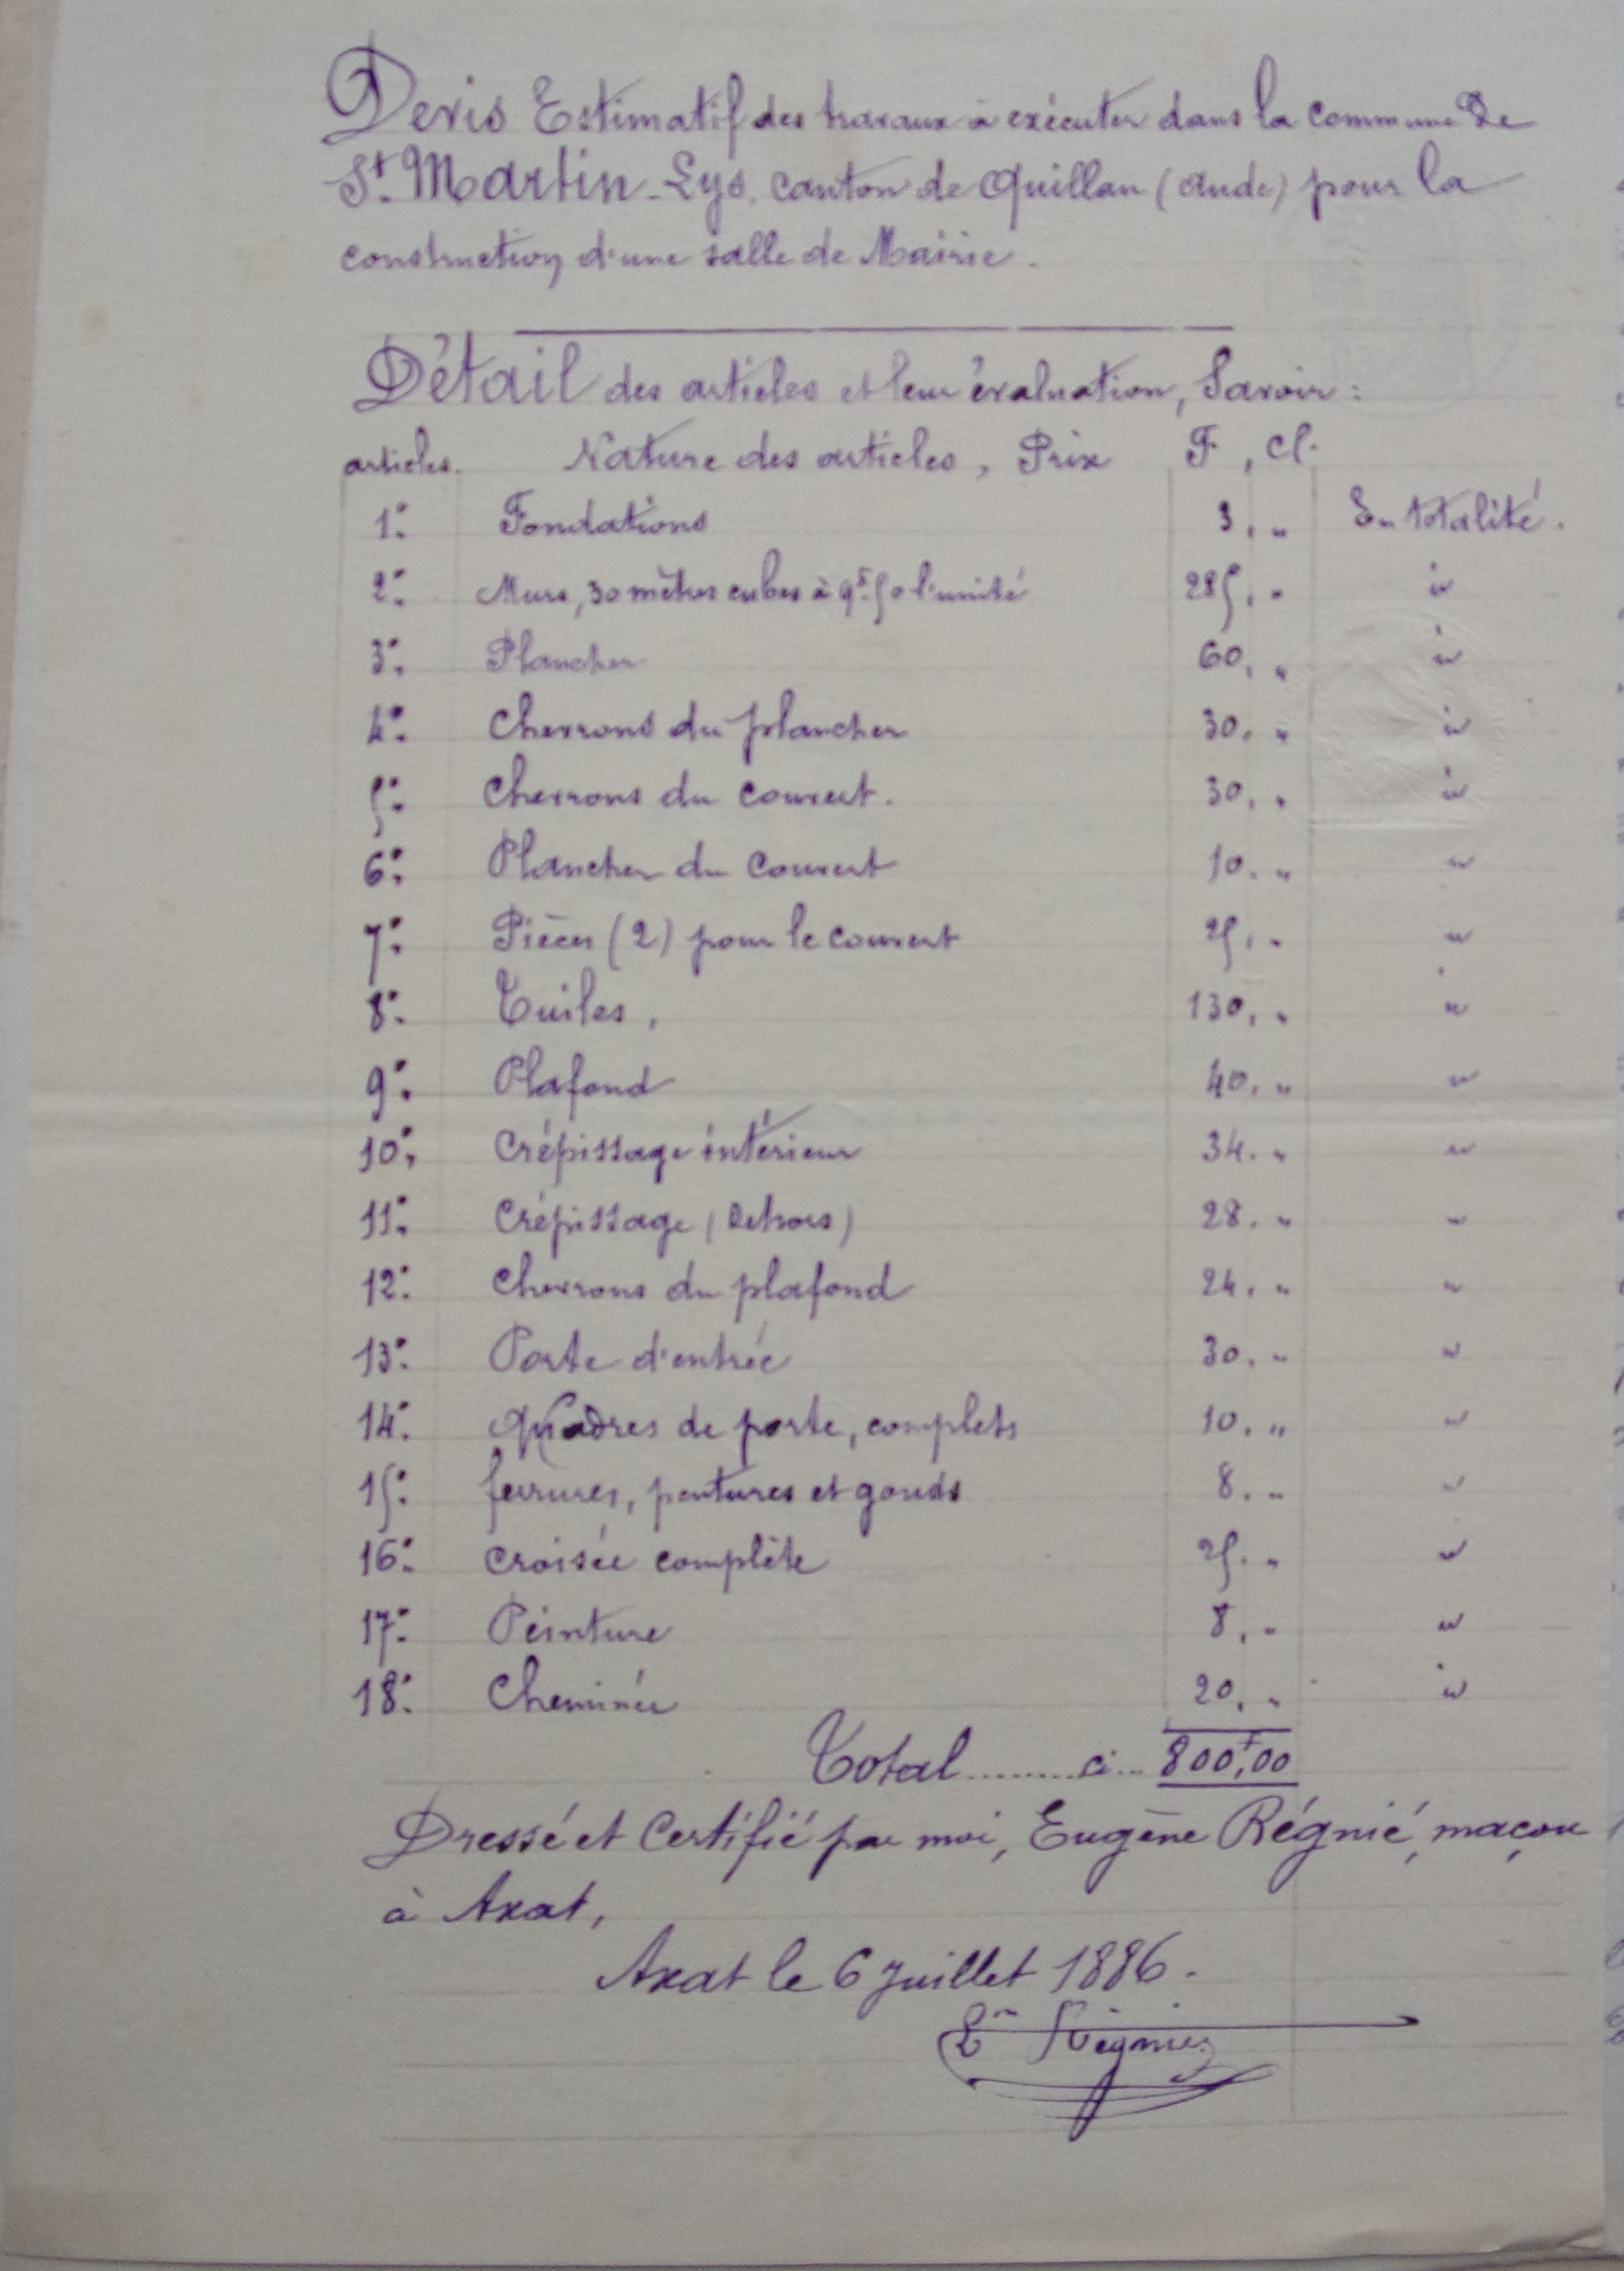 Devis Estimatif des travaux à exécuter dans la commune de
St. Martin-Lys, canton de Quillan (Aude) pour la
construction d'une salle de Mairie.
Détail des articles et leur évaluation, Savoir :
articles. Nature des articles, Prix F, Ct.
1º. Fondations 3, " En totalité.
2º. Murs, 30 mètres cubes à 9f.50 l'unité 285, " id
3º. Plancher 60, " id
4º. Chevrons du plancher 30, " id
5º. Chevrons du couvert. 30, " id
6º. Plancher du couvert 10, " "
7º. Pièces (2) pour le couvert 25, " "
8º. Tuiles, 130, " "
9º. Plafond 40, " "
10º. Crépissage intérieur 34, " "
11º. Crépissage (Dehors) 28, " "
12º. Chevrons du plafond 24, " "
13º. Porte d'entrée 30, " "
14º. Quadres de porte, complets 10, " "
15º. ferrures, pentures et gonds 8, " "
16º. Croisée complète 25, " "
17º. Peinture 8, " "
18º. Cheminée 20, " id
Total.........ci... 800f,00
Dressé et Certifié par moi, Eugène Régnié, maçon
à Axat,
Axat le 6 Juillet 1886.
En Régnier